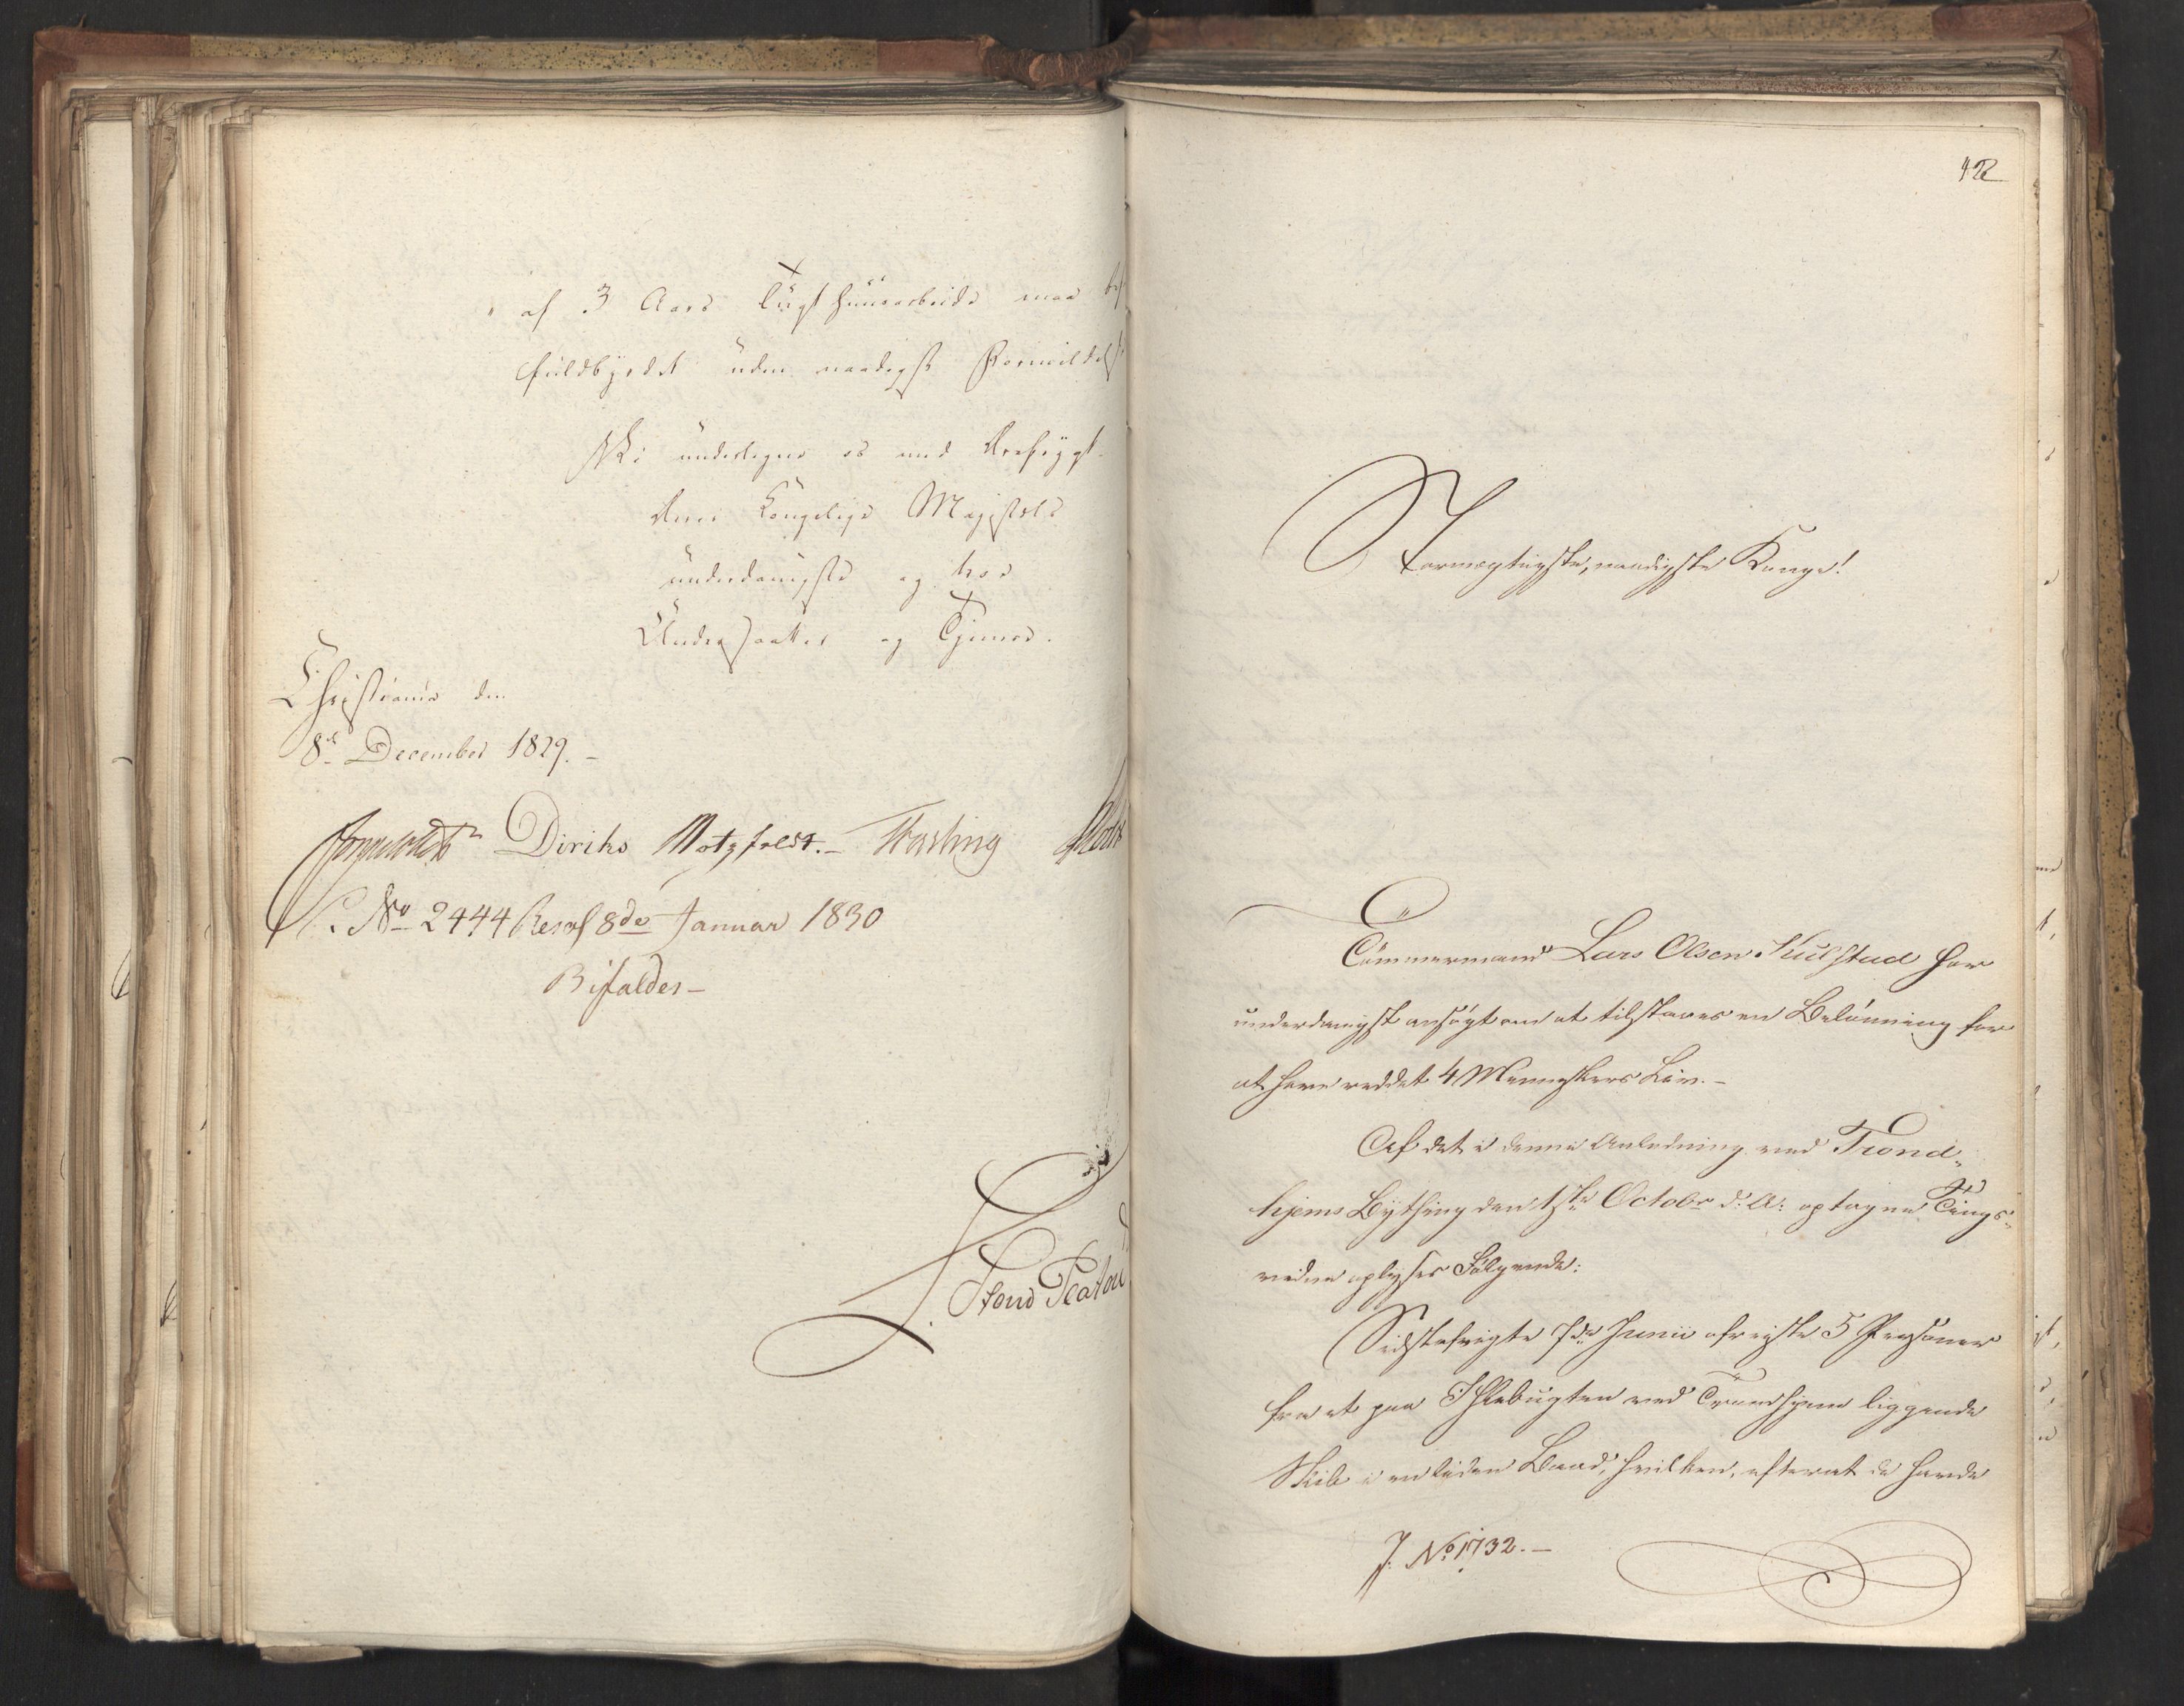 af 3 Aars Tugthuusarbeide maa
fuldbyrdet uden naadigst Formildelse
Vi undertegne os med Ærefrygt.
Deres Kongelige Majestæts
underdanigste og troe
Undersaatter og Tjenere.
Christiania den
8de December 1829.-
Diriks Motzfeldt.- Fasting
S. No 2444 Resol 8de Januar 1830
Bifaldes-
42
Stormægtigste, naadigste Konge!
Tömmermand Lars Olsen har
underdanigst ansögt om at tilstaaes en Belönning for
at have reddet 4 Menneskers Liv.-
Af det i denne Anledning ved Trond-
hjems Bything den 1ste Octobr d: A: optagne Tings-
vidne oplyses Fölgende:
Sidstafvigte 7de Junii afreiste 5 Personer
fra et paa Ihlebugten ved Trondhjem liggende
Skib i en liden Baad, hvilken, efterat de havde
J. No 1732.-